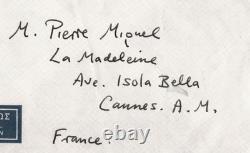 M. Pierre Miquel
La Madeleine
Ave. Isola Bella
Cannes. A.M.
France.